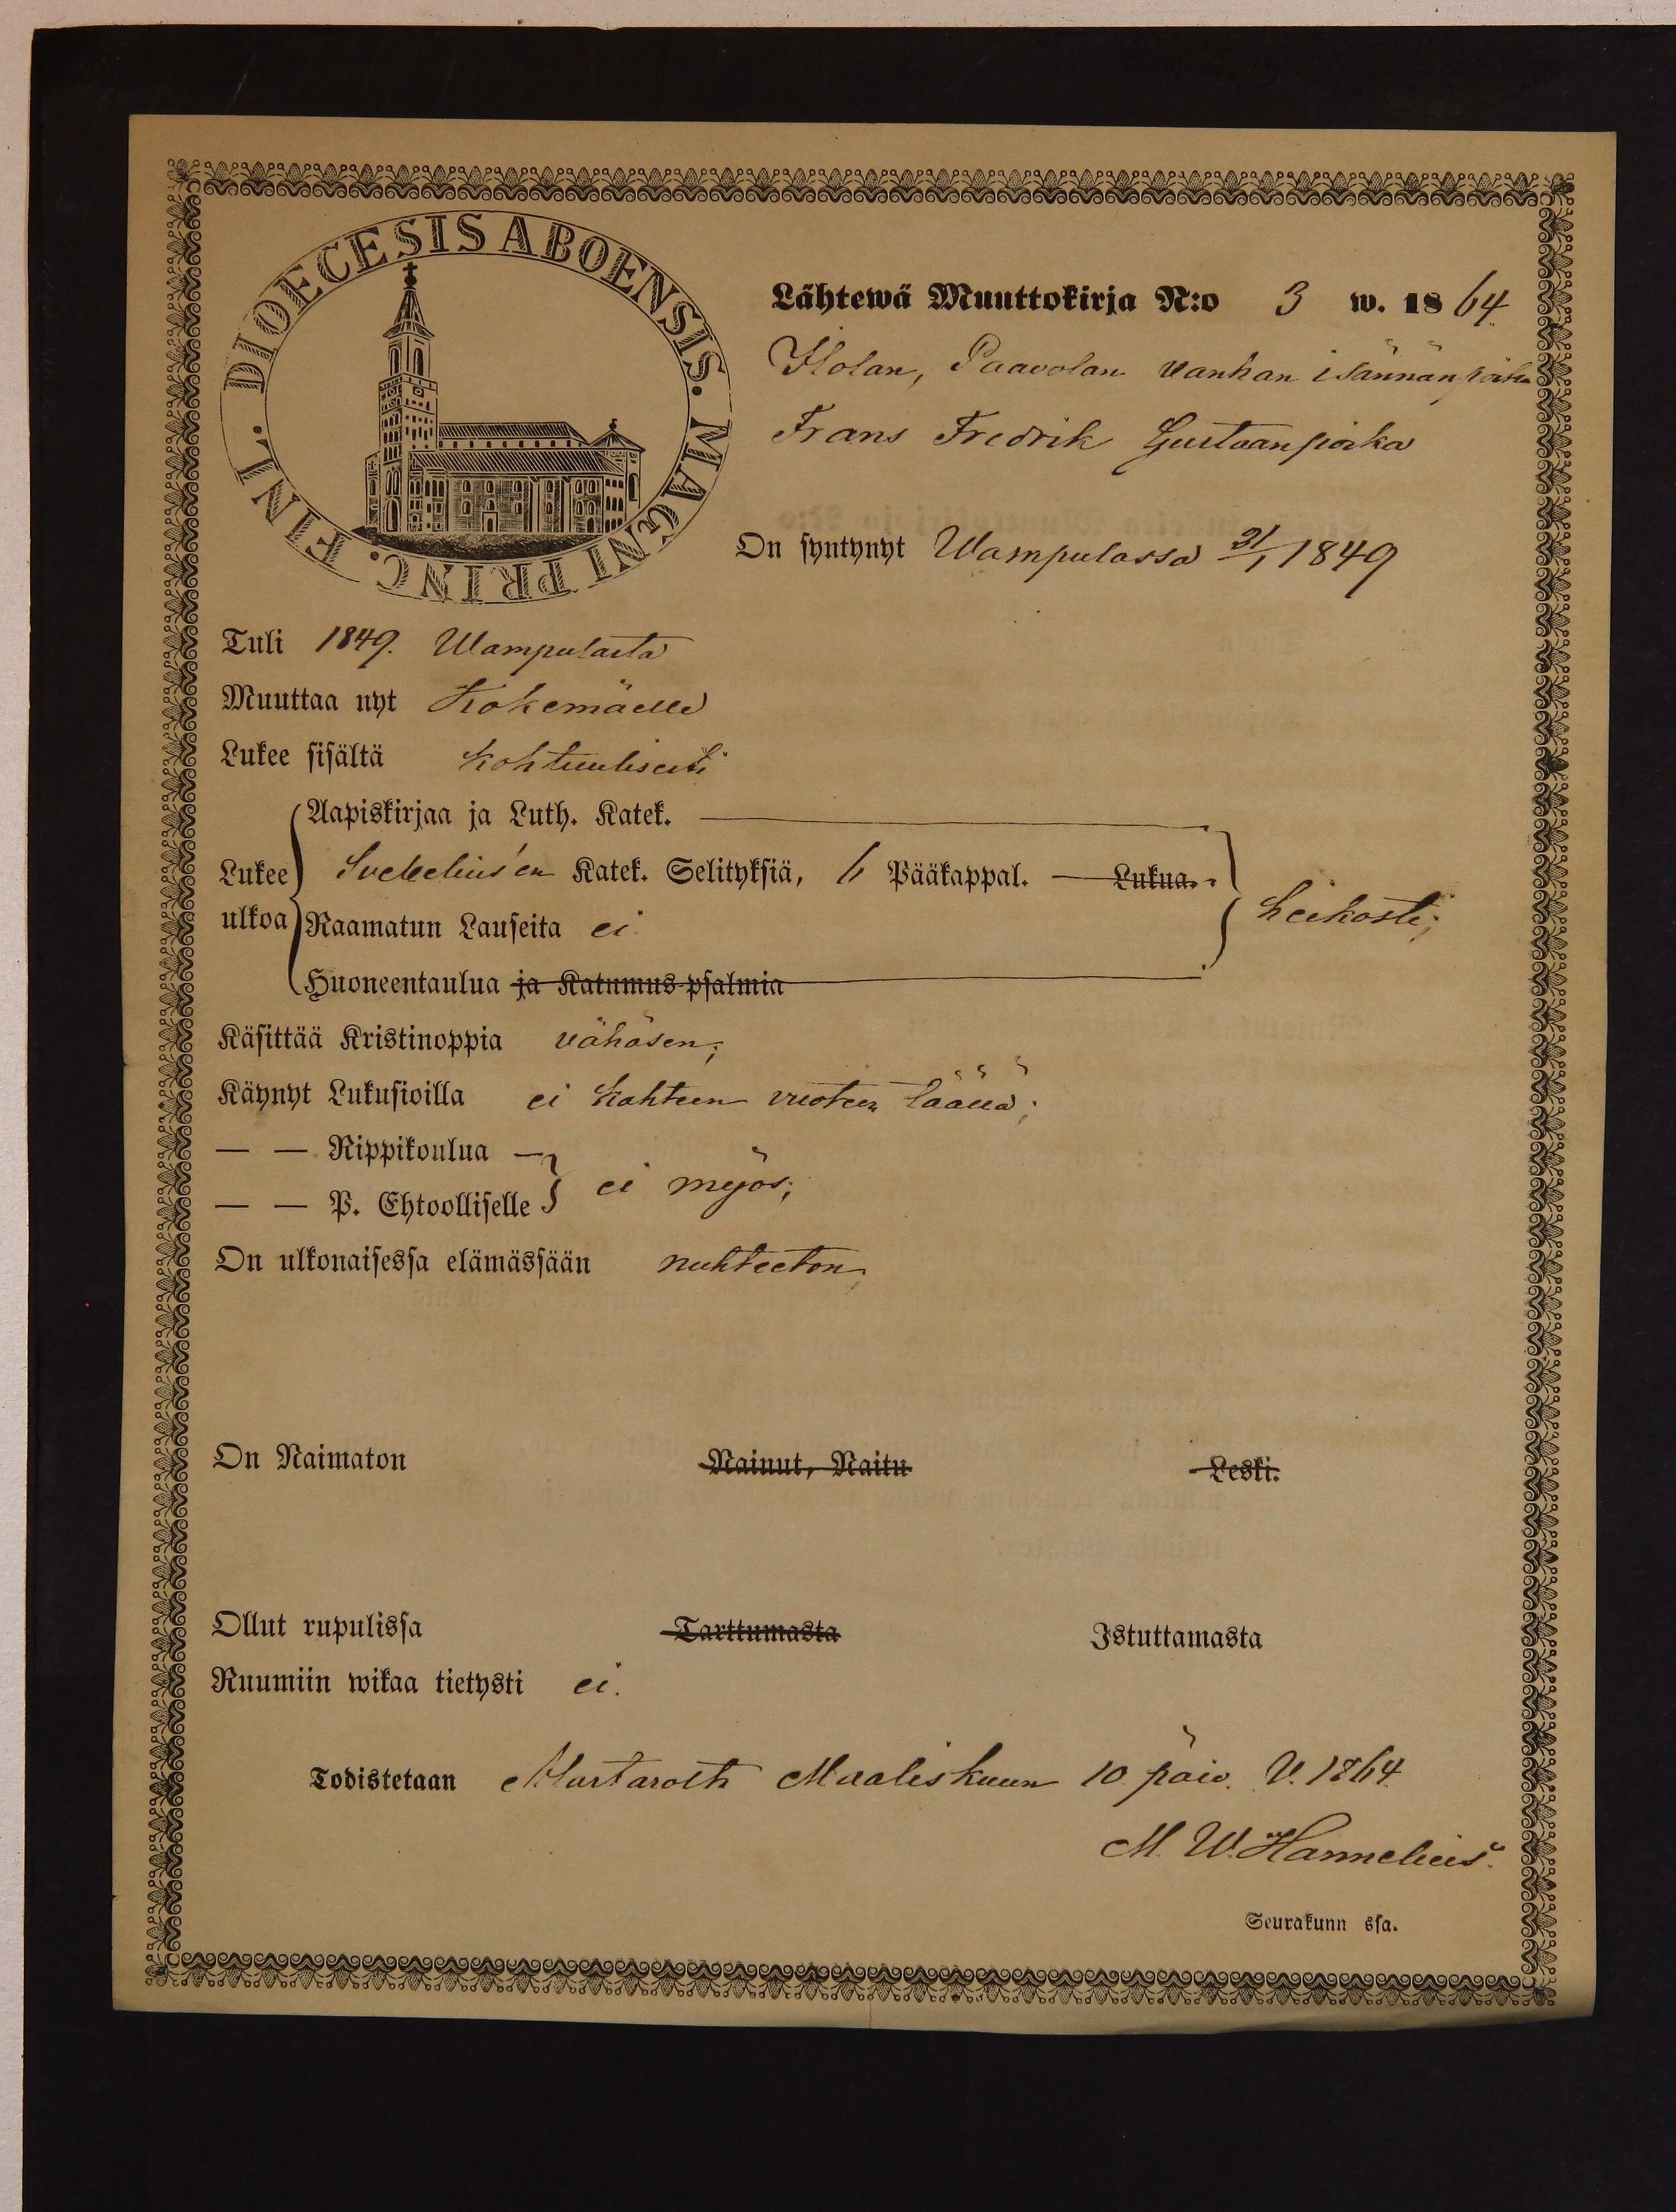 DIOECESIS ABOENSIS. MAGNI PRINC. FINL.
Lähtewä Muuttokirja N:o 3 w. 1864
Ilolan, Paavolan vanhan isännän poika
Frans Fredrik Gustaanpoika
On syntynyt Wampulassa 21/1 1849
Tuli 1849. Wampulasta
Muuttaa nyt Kokemäelle
Lukee sisältä kohtuulisesti
Aapiskirjaa ja Luth. Katek.
Lukee Svebelius'en Katek. Selityksiä, 6 Pääkappal. Lukua.
heikosti;
ulkoa Raamatun Lauseita ei
Huoneentaulua ja Katumus-psalmia
Käsittää Kristinoppia vähäsen;
Käynyt Lukusioilla ei kahteen vuoteen täällä;
— — Rippikoulua —
ei myös;
— — P. Ehtoolliselle
On ulkonaisessa elämässään nuhteeton
On Naimaton Nainut, Naitu Leski.
Ollut rupulissa Tarttumasta Istuttamasta
Ruumiin wikaa tietysti ei.
Todistetaan Maaliskuun 10 päiv. V. 1864.
M. W. Hannelius.
Seurakunn ssa.